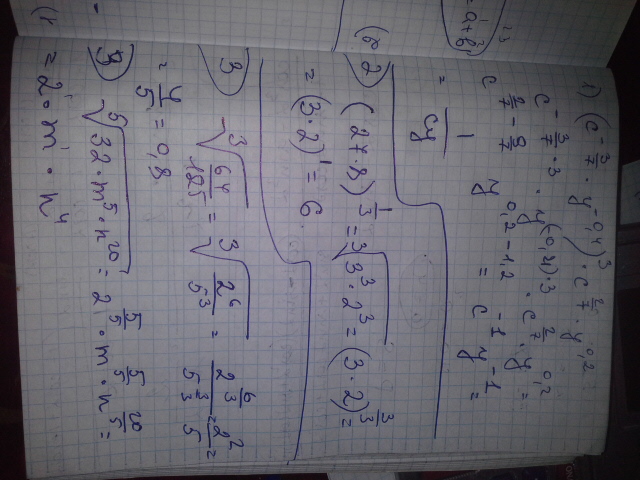 = a + b
1) (c^{-\frac{3}{7}} · y^{-0,4})^3 · c^{\frac{2}{7}} · y^{0,2}
c^{-\frac{3}{7}·3} · y^{(-0,4)·3} · c^{\frac{2}{7}} · y^{0,2} =
c^{\frac{2}{7}-\frac{9}{7}} y^{0,2-1,2} = c^{-1} y^{-1} =
= \frac{1}{cy}
2) (27·8)^{\frac{1}{3}} = \sqrt[3]{3^3·2^3} = (3·2)^{\frac{3}{3}} =
= (3·2)^1 = 6
3) \sqrt[3]{\frac{64}{125}} = \sqrt[3]{\frac{2^6}{5^3}} = \frac{2^{\frac{6}{3}}}{5^{\frac{3}{3}}} = \frac{2^2}{5} =
= \frac{4}{5} = 0,8
4) \sqrt[5]{32·m^5·n^{20}} = 2^{\frac{5}{5}} · m^{\frac{5}{5}} · n^{\frac{20}{5}} =
= 2^1 · m^1 · n^4